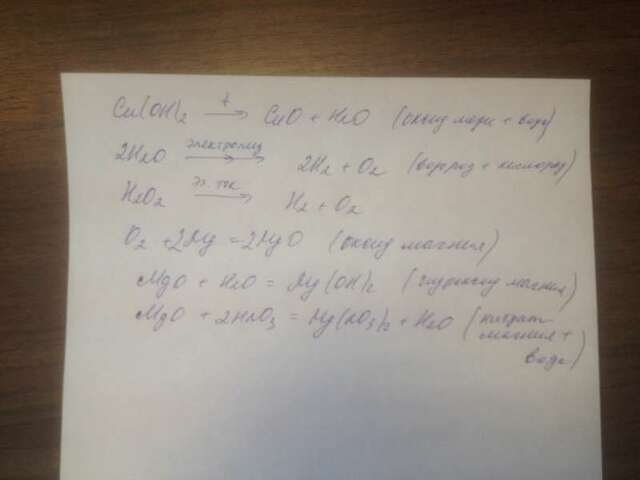 Cu(OH)₂ →t CuO + H₂O (оксид меди + вода)
2H₂O →электролиз 2H₂ + O₂ (водород + кислород)
H₂O₂ →эл. ток H₂ + O₂
O₂ + 2Mg = 2MgO (оксид магния)
MgO + H₂O = Mg(OH)₂ (гидроксид магния)
MgO + 2HNO₃ = Mg(NO₃)₂ + H₂O (нитрат
магния +
вода)